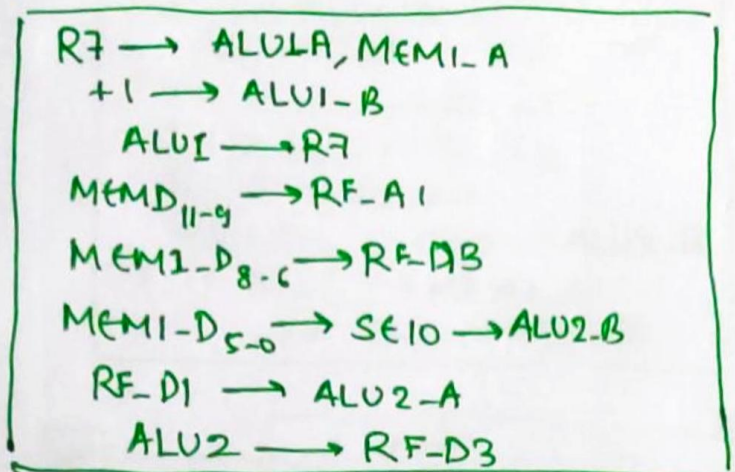 R7 → ALU1A, MEM1-A
+1 → ALU1-B
ALU1 → R7
MEMD11-9 → RF-A1
MEM1-D8-6 → RF-A3
MEM1-D5-0 → SE10 → ALU2-B
RF-D1 → ALU2-A
ALU2 → RF-D3